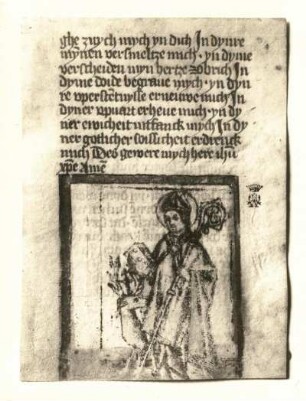 ghe zuych mych yn dich In dynre
mynen versmeltze mich · yn dyme
verscheiden myn hertze zobrich In
dyme dode begraue mych · yn dyn
re vperstentnisse ernuwe mich In
dyner vpuart erheue mich · yn dy
ner ewicheit intfanck mych In dy
ner gotlicher soissicheit erdrenck
mich Des gewere mych here ihu
xpe Ame